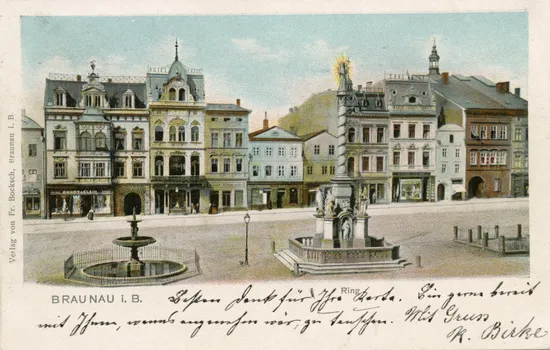 Verlag von Fr. Bocksch, Braunau i. B.
BRAUNAU i. B.
Ring
Besten Dank für Ihre Karte. Bin gerne bereit
mit Ihnen, wenns angenehm wär, zu tauschen. Mit Gruss
K. Birke